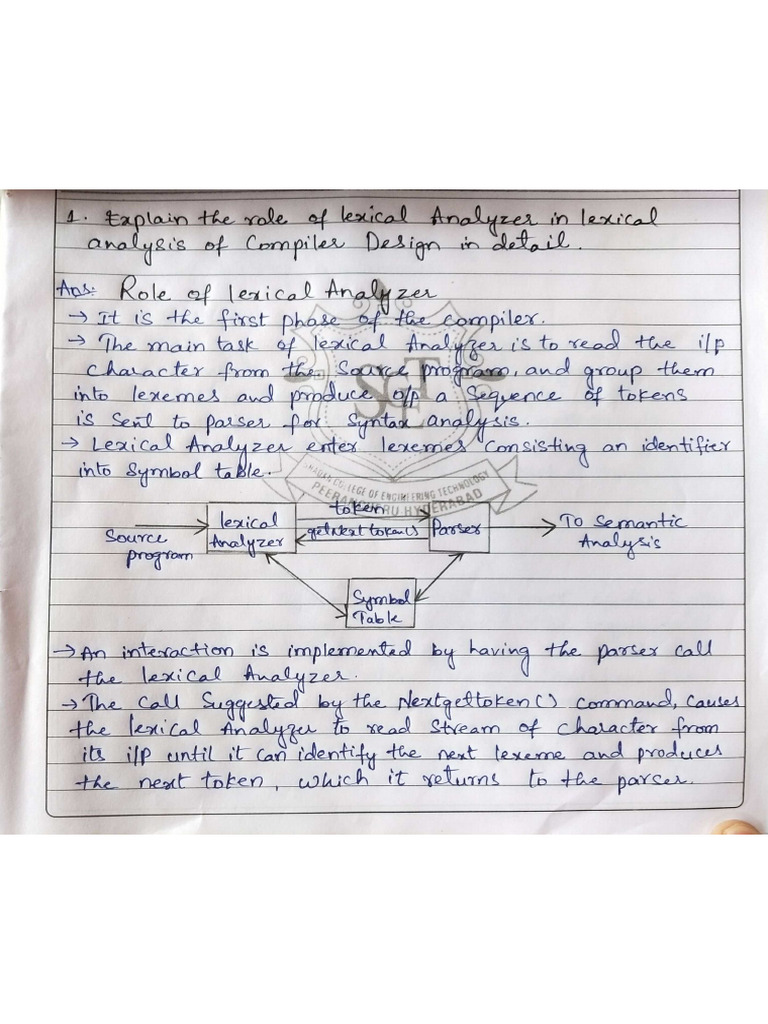 1. Explain the role of lexical Analyzer in lexical
analysis of Compiler Design in detail.
Ans: Role of lexical Analyzer
→ It is the first phase of the compiler.
→ The main task of lexical Analyzer is to read the i/p
character from the Source program, and group them
into lexemes and produce o/p a Sequence of tokens
is sent to parser for Syntax analysis.
→ Lexical Analyzer enter lexemes consisting an identifier
into Symbol table.
SGET
SHADAN COLLEGE OF ENGINEERING TECHNOLOGY
HYDERABAD
Source
program
lexical
Analyzer
token
getNext token()
Parser
To Semantic
Analysis
Symbol
Table
→ An interaction is implemented by having the parser call
the lexical Analyzer.
→ The Call Suggested by the Nextgettoken() command, causes
the lexical Analyzer to read stream of character from
its i/p until it can identify the next lexeme and produces
the next token, which it returns to the parser.